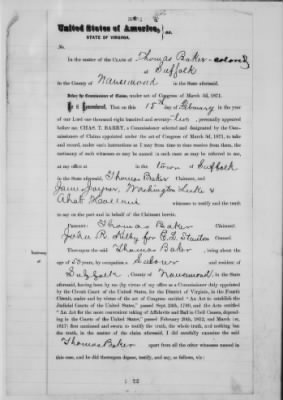 United States of America, } ss.
STATE OF VIRGINIA.
No.
In the matter of the CLAIM of Thomas Baker - colored
of Suffolk
in the County of Nansemond in the State aforesaid.
Before the Commissioner of Claims, under act of Congress of March 3d, 1871.
Be it Remembered, That on this 15th day of February in the year
of our Lord one thousand eight hundred and seventy-two, personally appeared
before me, CHAS. T. BARRY, a Commissioner selected and designated by the Com-
missioners of Claims appointed under the act of Congress of March 3d, 1871, to take
and record, under such instructions as I may from time to time receive from them, the
testimony of such witnesses as may be named in such cases as may be referred to me,
at my office at in the town of Suffolk
in the State aforesaid, Thomas Baker Claimant, and
James Joyner, Washington Luke &
Ahab witnesses to testify and the truth
to say on the part and in behalf of the Claimant herein.
PRESENT: Thomas Baker Claimant.
John R. Kilby for Counsel
Thereupon the said Thomas Baker, being about the
age of 50 years, by occupation a Laborer and resident of
Suffolk, County of Nansemond, in the State
aforesaid, having been by me (by virtue of my office as a Commissioner duly appointed
by the Circuit Court of the United States, for the District of Virginia, in the Fourth
Circuit, under and by virtue of the acts of Congress entitled "An Act to establish the
Judicial Courts of the United States," passed Sept. 24th, 1789, and the Acts entitled
"An Act for the more convenient taking of Affidavits and Bail in Civil Causes, depend-
ing in the Courts of the United States," passed February 20th, 1812, and March 1st,
1817) first cautioned and sworn to testify the truth, the whole truth, and nothing but
the truth, in the matter of the claim aforesaid, I did carefully examine the said
Thomas Baker apart from all the other witnesses named in
this case, and he did thereupon depose, testify, and say, as follows, viz: